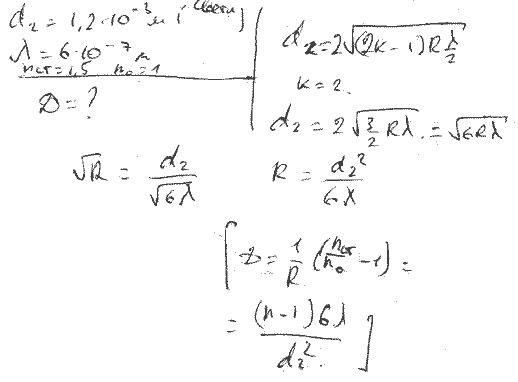 d₂ = 1,2·10⁻³ м (
λ = 6·10⁻⁷ м
nст = 1,5 n₀ = 1
D = ?
d₂ = 2√((2k-1)R λ/2)
k = 2.
d₂ = 2√(3/2 Rλ) = √(6Rλ)
√R = d₂/√(6λ) R = d₂²/6λ
[D = 1/R (nст/n₀ - 1) =
= (n-1)6λ/d₂².]